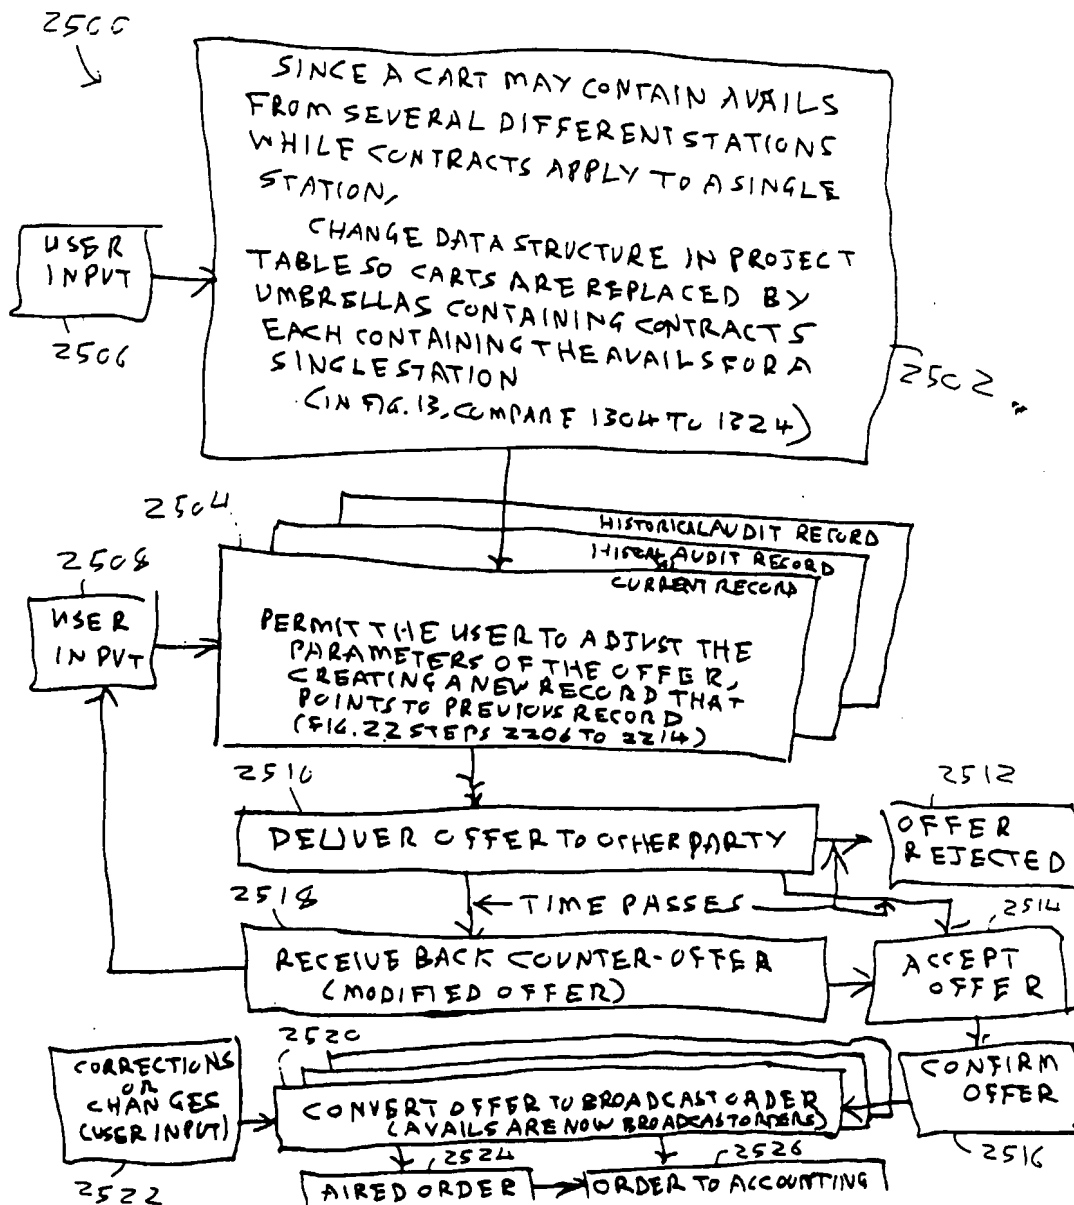 2500
SINCE A CART MAY CONTAIN AVAILS
FROM SEVERAL DIFFERENT STATIONS
WHILE CONTRACTS APPLY TO A SINGLE
STATION,
CHANGE DATA STRUCTURE IN PROJECT
TABLE SO CARTS ARE REPLACED BY
UMBRELLAS CONTAINING CONTRACTS
EACH CONTAINING THE AVAILS FOR A
SINGLE STATION
(IN FIG. 13, COMPARE 1304 TO 1324)
USER
INPUT
2506
2502
2504
HISTORICAL AUDIT RECORD
AUDIT RECORD
CURRENT RECORD
2508
USER
INPUT
PERMIT THE USER TO ADJUST THE
PARAMETERS OF THE OFFER,
CREATING A NEW RECORD THAT
POINTS TO PREVIOUS RECORD
(FIG. 22 STEPS 2206 TO 2214)
2510
DELIVER OFFER TO OTHER PARTY
2512
OFFER
REJECTED
2518
TIME PASSES
2514
RECEIVE BACK COUNTER-OFFER
(MODIFIED OFFER)
ACCEPT
OFFER
2520
CORRECTIONS
OR
CHANGES
(USER INPUT)
CONVERT OFFER TO BROADCAST ORDER
(AVAILS ARE NOW BROADCAST ORDERS)
CONFIRM
OFFER
2516
2522
2524
2526
AIRED ORDER
ORDER TO ACCOUNTING